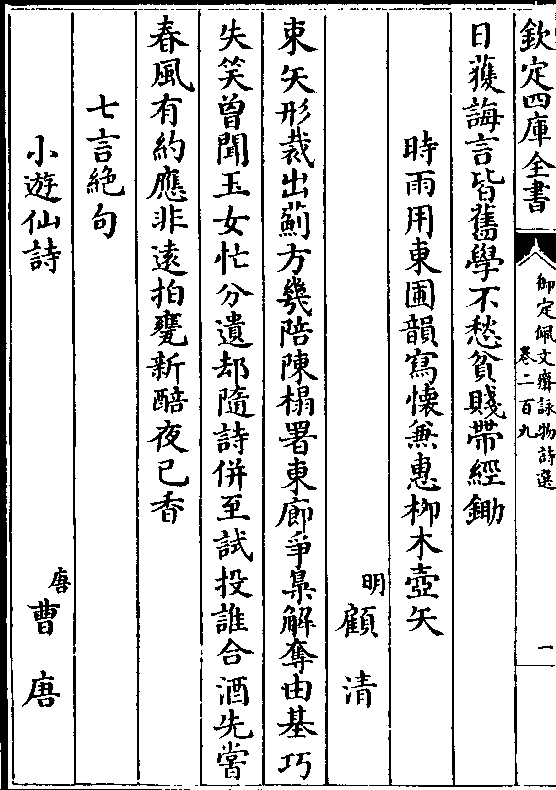 欽定四庫全書
御定佩文齋詠物詩選
卷二百九
一
日蒦誨言皆舊學不愁貧賤帶經鋤
時雨用東圃韻寫懷兼惠柳木壺矢
明 顧清
束矢形裁出薊方幾陪陳榻署東廊爭梟解奪由基巧
失笑曾聞玉女忙分遺却隨詩併至試投誰合酒先嘗
春風有約應非遠拍甕新醅夜已香
七言絶句
小遊仙詩
唐 曹唐